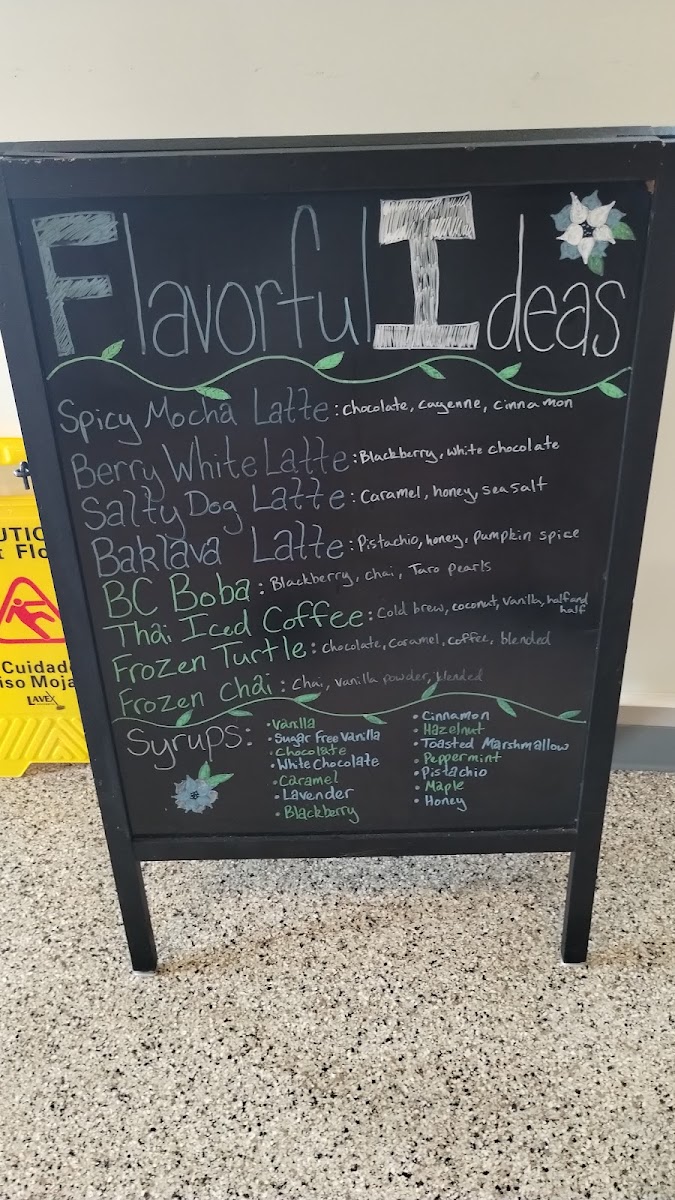 Flavorful Ideas
Spicy Mocha Latte: chocolate, cayenne, cinnamon
Berry White Latte: Blackberry, white chocolate
Salty Dog Latte: Caramel, honey, sea salt
Baklava Latte: Pistachio, honey, pumpkin spice
BC Boba: Blackberry, chai, Taro pearls
Thai Iced Coffee: Cold brew, coconut, vanilla, half and half
Frozen Turtle: chocolate, caramel, coffee, blended
Frozen Chai: Chai, vanilla powder, blended
Syrups:
• Vanilla
• Sugar Free Vanilla
• Chocolate
• White Chocolate
• Caramel
• Lavender
• Blackberry
• Cinnamon
• Hazelnut
• Toasted Marshmallow
• Peppermint
• Pistachio
• Maple
• Honey
UTIO
t Flo
Cuidad
iso Moja
LAVEX